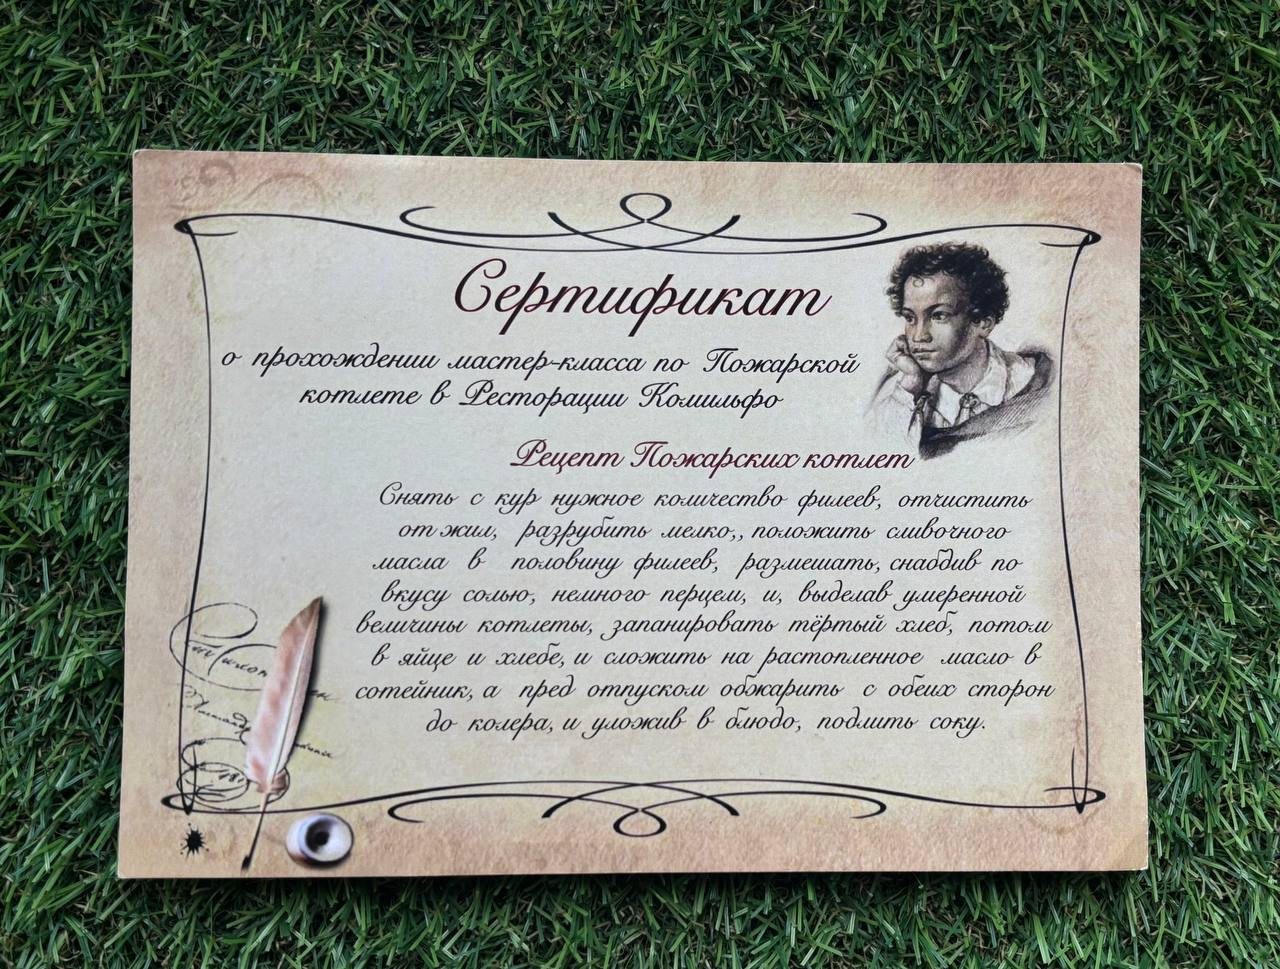 Сертификат
о прохождении мастер-класса по Пожарской
котлете в Ресторации Комильфо
Рецепт Пожарских котлет
Снять с кур нужное количество филеев, отчистить
от жил, разрубить мелко,, положить сливочного
масла в половину филеев, размешать, снабдив по
вкусу солью, немного перцем, и, выделав умеренной
величины котлеты, запанировать тёртый хлеб, потом
в яйце и хлебе, и сложить на растопленное масло в
сотейник, а пред отпуском обжарить с обеих сторон
до колера, и уложив в блюдо, подлить соку.